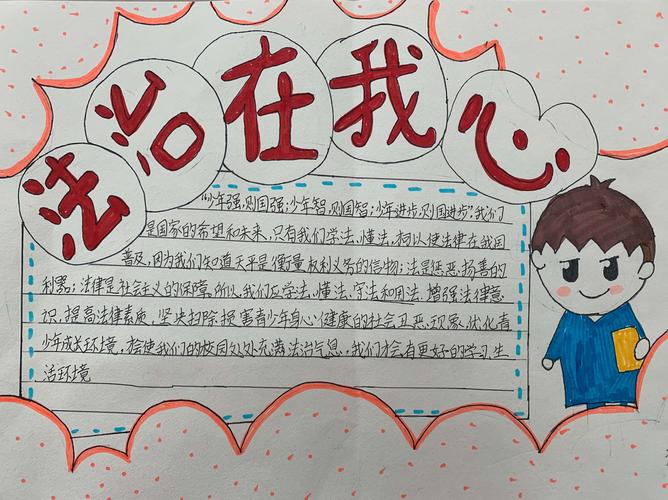 法治在我心
“少年强,则国强;少年智,则国智;少年进步,则国进步”。我们
是国家的希望和未来,只有我们学法、懂法、相以使法律在我国
普及,因为我们知道天平是衡量权利义务的信物;法是惩恶扬善的
利器;法律是社会主义的保障。所以,我们应学法、懂法、守法和用法,增强法律意
识,提高法律素质,坚决扫除损害青少年身心健康的社会丑恶现象,优化青
少年成长环境,才会使我们的校园处处充满法治气息,我们才会有更好的学习生
活环境